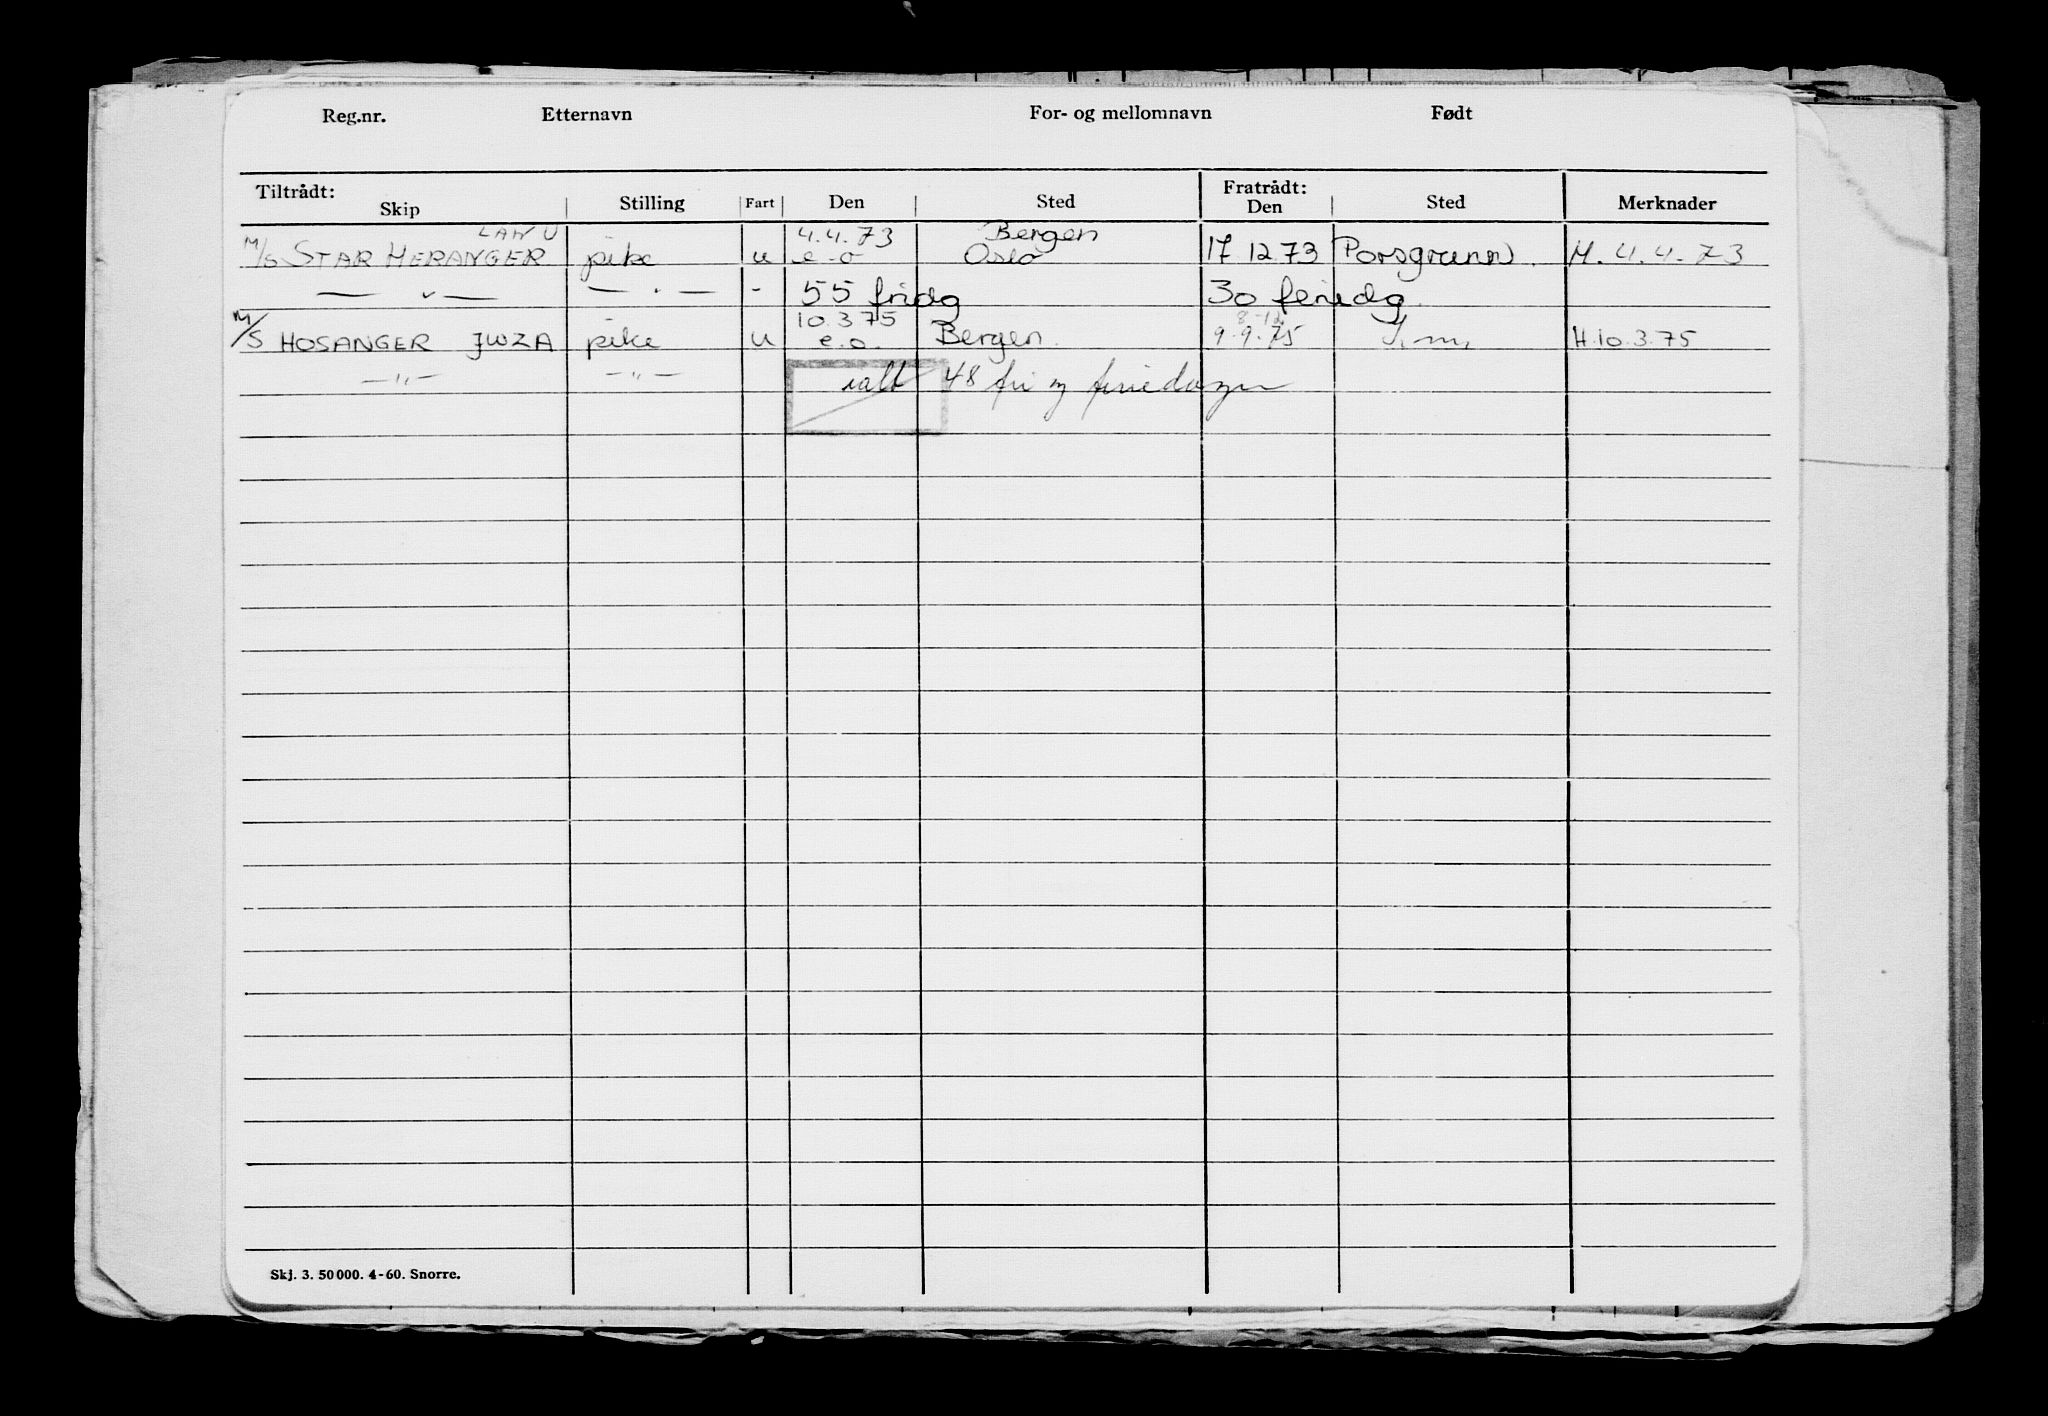 Reg.nr. Etternavn For- og mellomnavn Født
Tiltrådt: Fratrådt:
Skip Stilling Fart Den Sted Den Sted Merknader
LAHU 4.4.73 Bergen
M/S STAR HERANGER pike u e-o Oslo 17 12 73 Porsgrunn. H. 4.4.73
— " — — " — - 55 fridg 30 feriedg.
10.3 75 8-12
M/S HOSANGER JWZA pike u e.o. Bergen. 9.9.75 H.10.3.75
— " — — " — ialt 48 fri og feriedager
Skj. 3. 50 000. 4-60. Snorre.